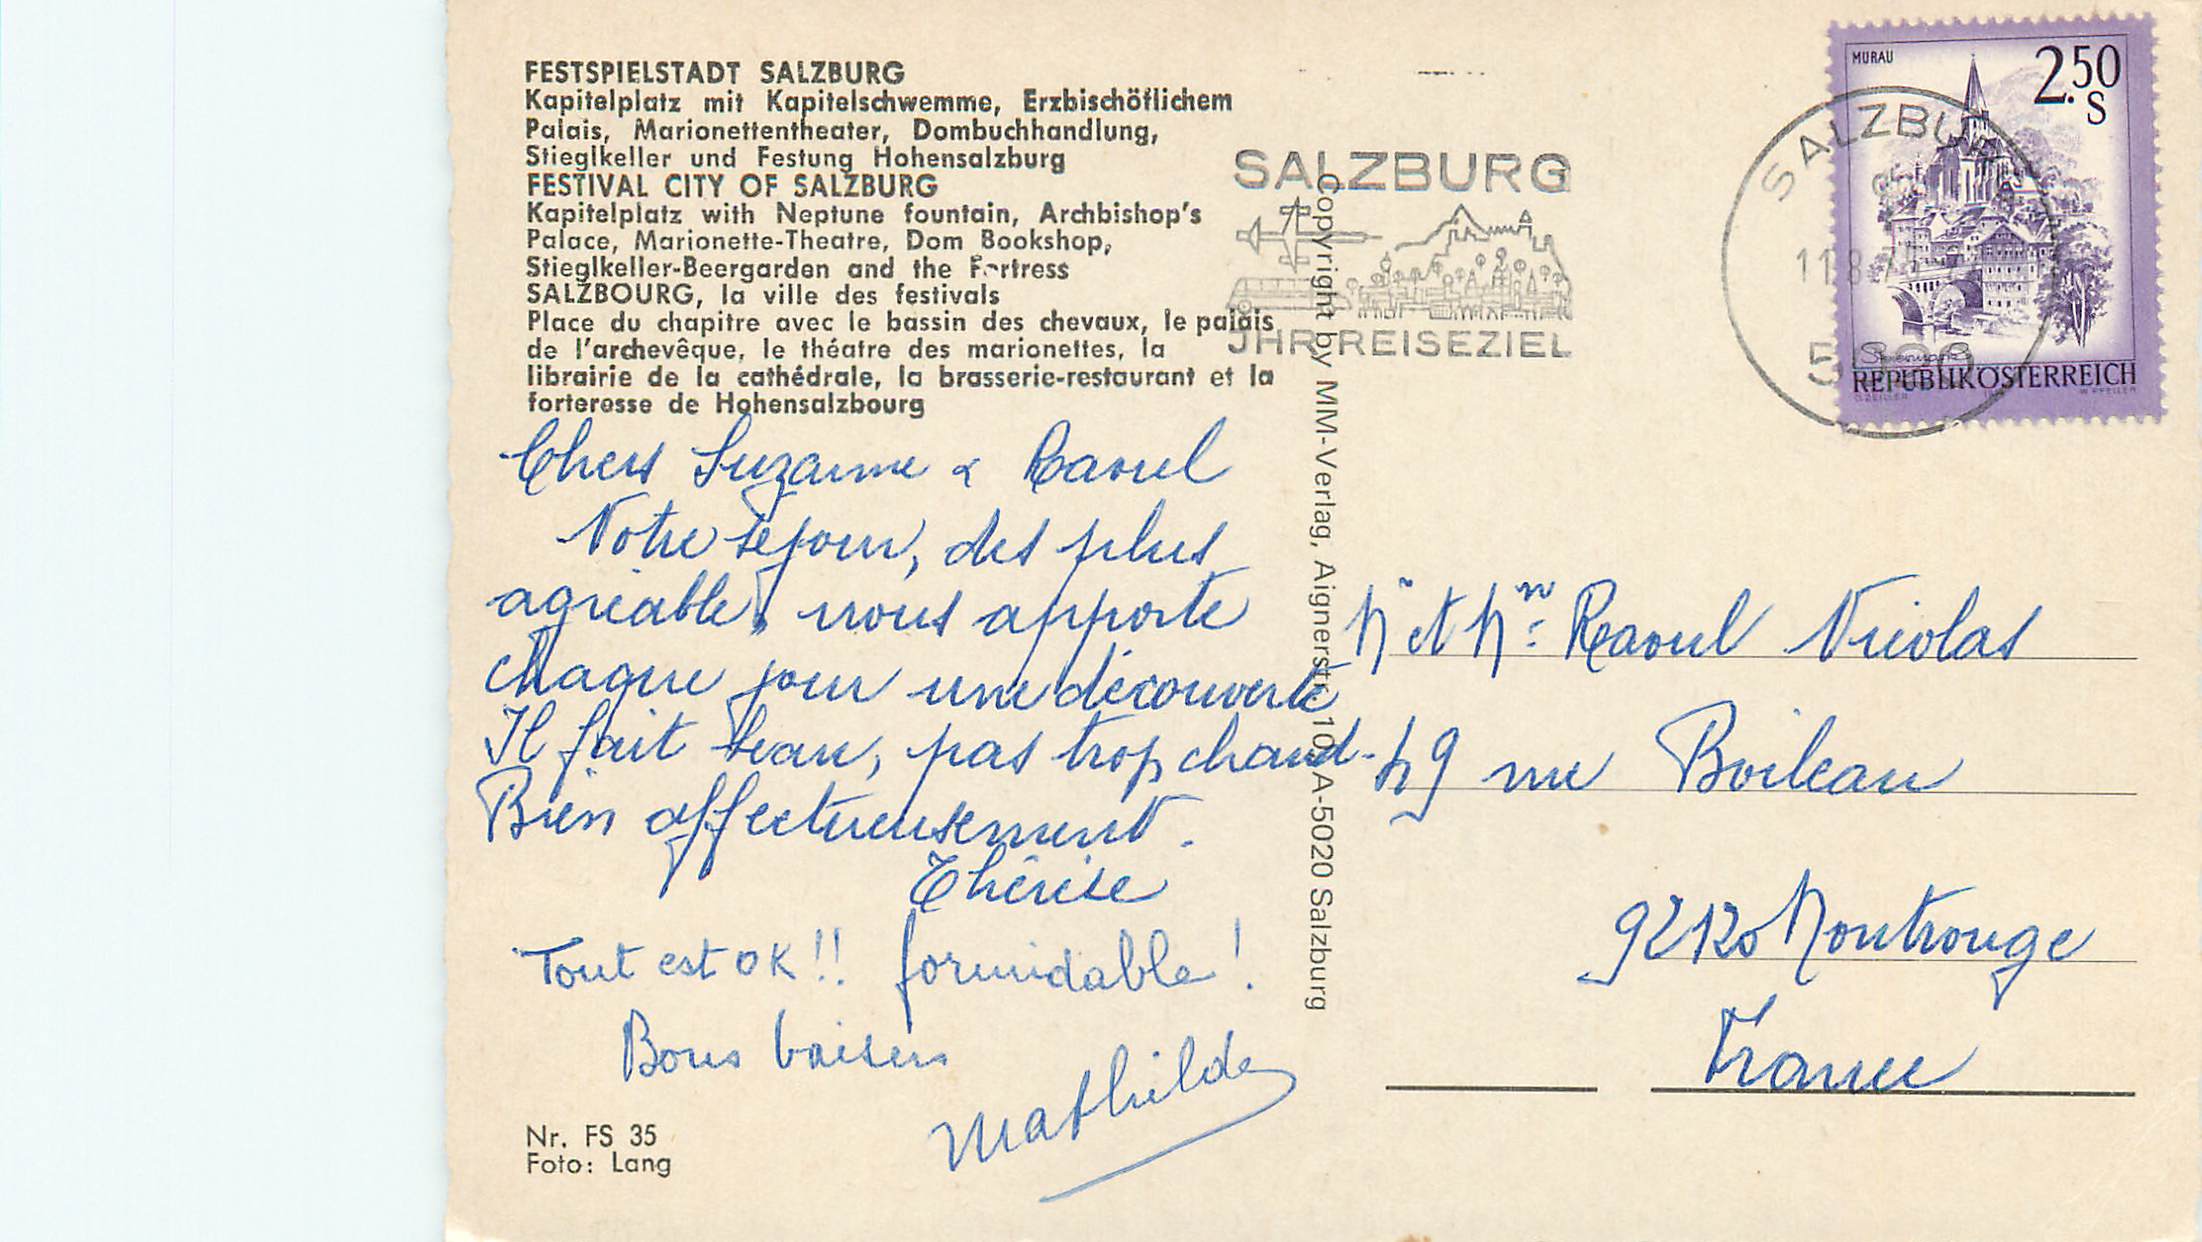 FESTSPIELSTADT SALZBURG
Kapitelplatz mit Kapitelschwemme, Erzbischöflichem
Palais, Marionettentheater, Dombuchhandlung,
Stieglkeller und Festung Hohensalzburg
FESTIVAL CITY OF SALZBURG
Kapitelplatz with Neptune fountain, Archbishop's
Palace, Marionette-Theatre, Dom Bookshop,
Stieglkeller-Beergarden and the Fortress
SALZBOURG, la ville des festivals
Place du chapitre avec le bassin des chevaux, le palais
de l'archevêque, le théatre des marionettes, la
librairie de la cathédrale, la brasserie-restaurant et la
forteresse de Hohensalzbourg
Chers Suzanne & Raoul
Notre séjour, des plus
agréable, nous apporte
chaque jour une découverte
Il fait beau, pas trop chaud -
Bien affectueusement.
Thérèse
Tout est OK !! formidable !
Bons baisers
Mathilde
Nr. FS 35
Foto: Lang
Copyright by MM-Verlag, Aignerstr. 10, A-5020 Salzburg
SALZBURG
JHR REISEZIEL
SALZBURG
11.8.7
MURAU
2.50
S
Steiermark
REPUBLIK ÖSTERREICH
Mr et Mme Raoul Nicolas
49 rue Boileau
92120 Montrouge
France